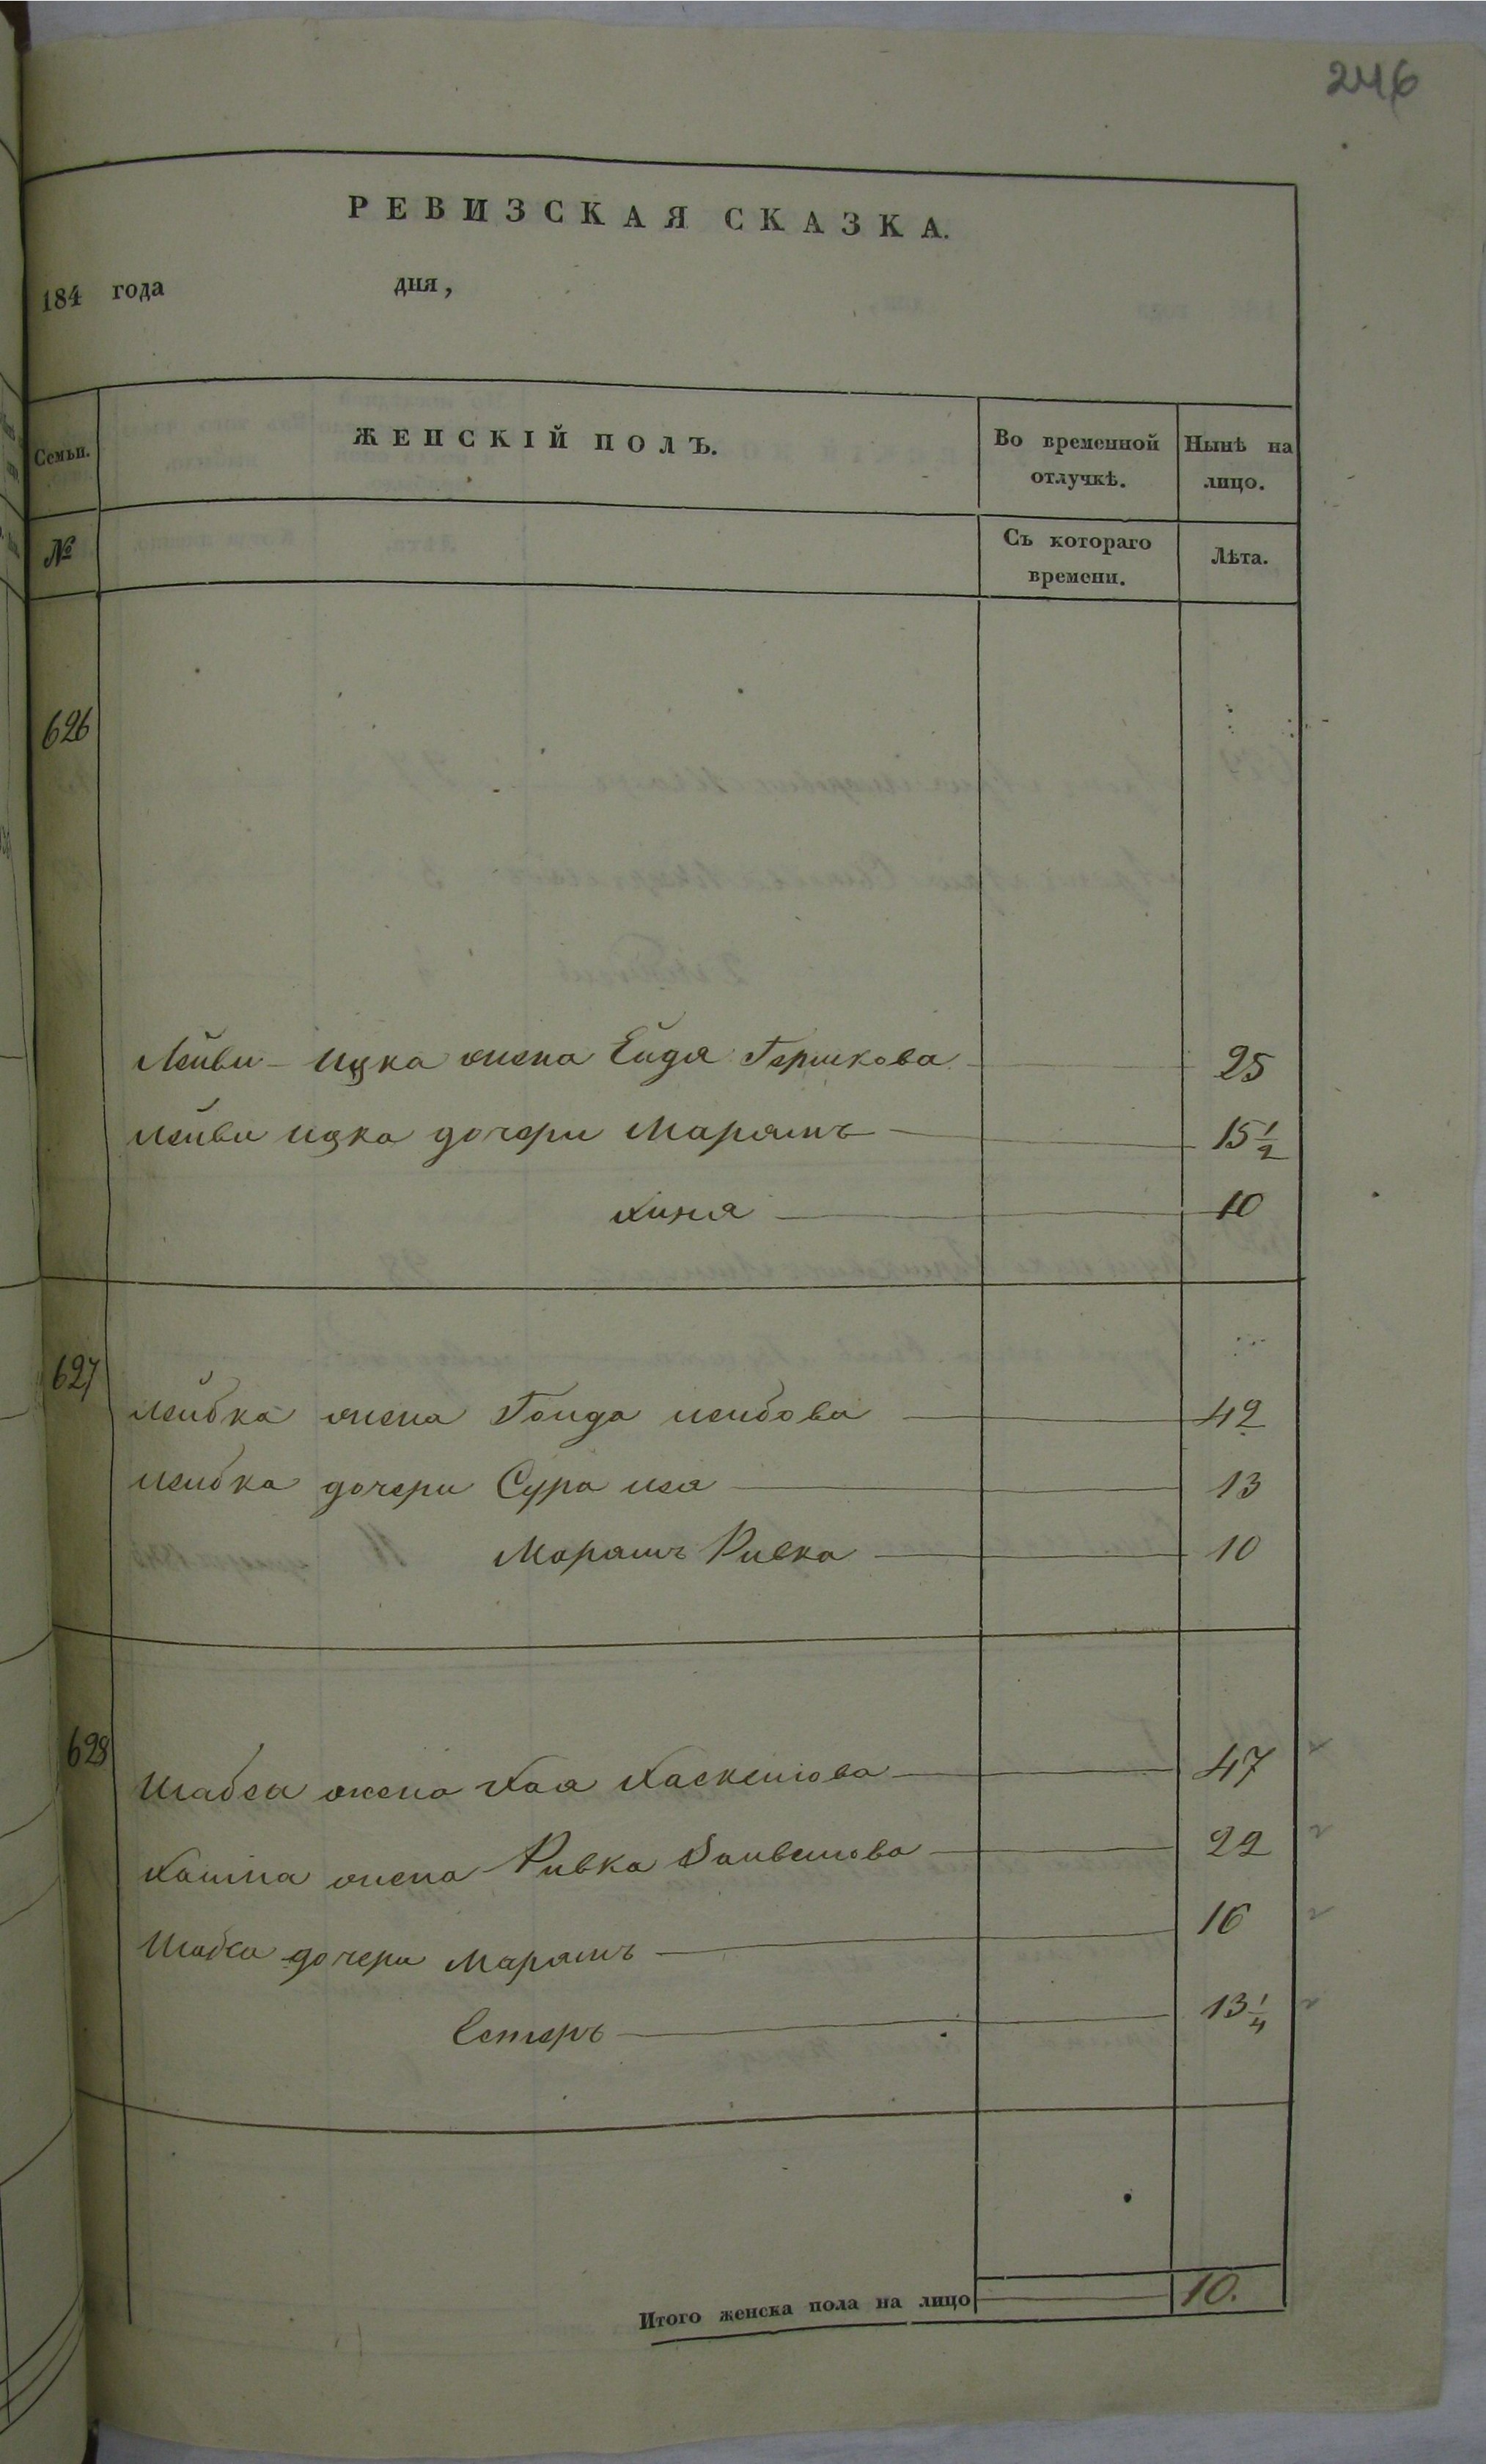 246
РЕВИЗСКАЯ СКАЗКА.
184 года дня,
Семьи. ЖЕНСКІЙ ПОЛЪ. Во временной отлучкѣ. Нынѣ на лицо.
№ Съ котораго времени. Лѣта.
626
Лейви-Ицка жена Ейдя Гершкова 25
Лейви Ицка дочери Марямъ 15 1/2
Хиня 10
627
Лейбка жена Голда Лейбова 42
Лейбка дочери Сура Лея 13
Марямъ Ривка 10
628
Шабса жена Хая Хаскелева 47
жена Ривка 22
Шабса дочери Марямъ 16
Естеръ 13 1/4
Итого женска пола на лицо 10.